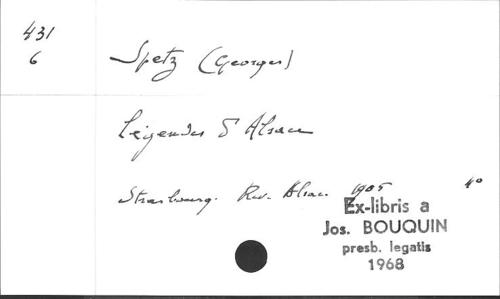 431
6
Spetz (Georges)
Légendes d'Alsace
Strasbourg. Rev. Alsac. 1905 4°
Ex-libris a
Jos. BOUQUIN
presb. legatis
1968